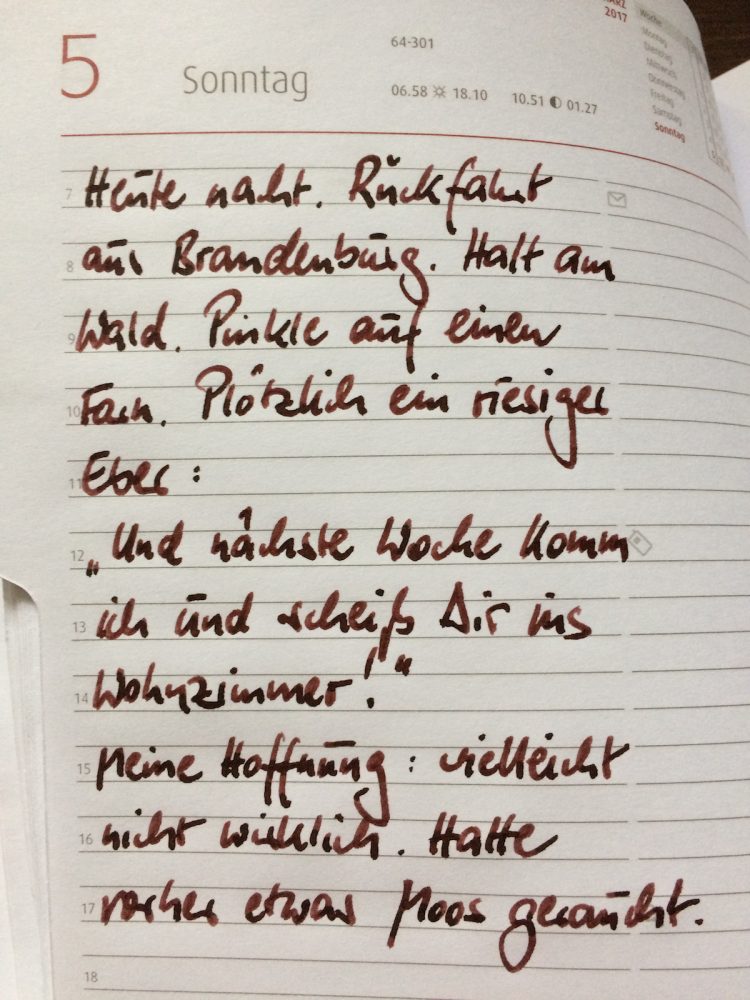 MÄRZ
2017
5
Sonntag
64-301
06.58 ☼ 18.10 10.51 ◐ 01.27
Woche
Montag
Dienstag
Mittwoch
Donnerstag
Freitag
Samstag
Sonntag
7 Heute nacht. Rückfahrt
8 aus Brandenburg. Halt am
9 Wald. Pinkle auf einen
10 Farn. Plötzlich ein riesiger
11 Eber:
12 „Und nächste Woche komm
13 ich und scheiß Dir ins
14 Wohnzimmer!“
15 Meine Hoffnung: vielleicht
16 nicht wirklich. Hatte
17 vorher etwas Moos geraucht.
18